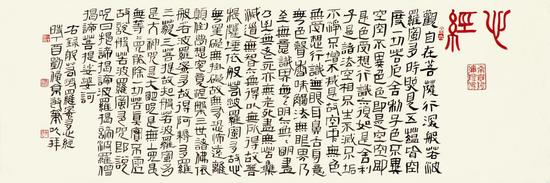 心經
觀自在菩薩行深般若波
羅蜜多時照見五蘊皆空
度一切苦厄舍利子色不異
空空不異色色即是空空即
是色受想行識亦復如是舍利
子是諸法空相不生不滅不垢
不淨不增不減是故空中無
色無受想行識無眼耳鼻舌身意
無色聲香味觸法無眼界乃
至無意識界無無明亦無無明盡
乃至無老死亦無老死盡無苦集
滅道無智亦無得以無所得故菩
提薩埵依般若波羅蜜多故心
無罣礙無罣礙故無有恐怖遠離
顛倒夢想究竟涅槃三世諸佛依
般若波羅蜜多故得阿耨多羅
三藐三菩提故知般若波羅蜜多
是大神咒是大明咒是無上咒是
無等等咒能除一切苦真實不虛
故說般若波羅蜜多咒即說
咒曰揭諦揭諦波羅揭諦波羅僧
揭諦菩提薩婆訶
右錄般若波羅蜜多心經